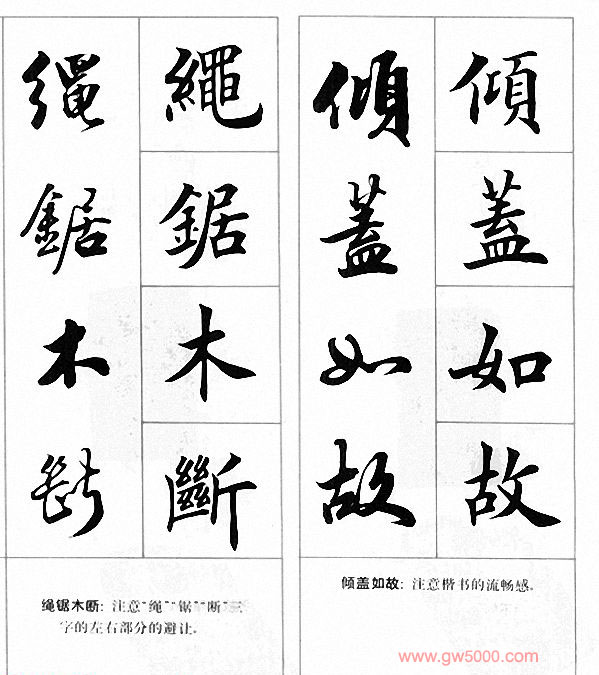 傾蓋如故
傾蓋如故
倾盖如故：注意楷书的流畅感。
繩鋸木斷
繩鋸木斷
绳锯木断：注意“绳”“锯”“断”三
字的左右部分的避让。
www.gw5000.com